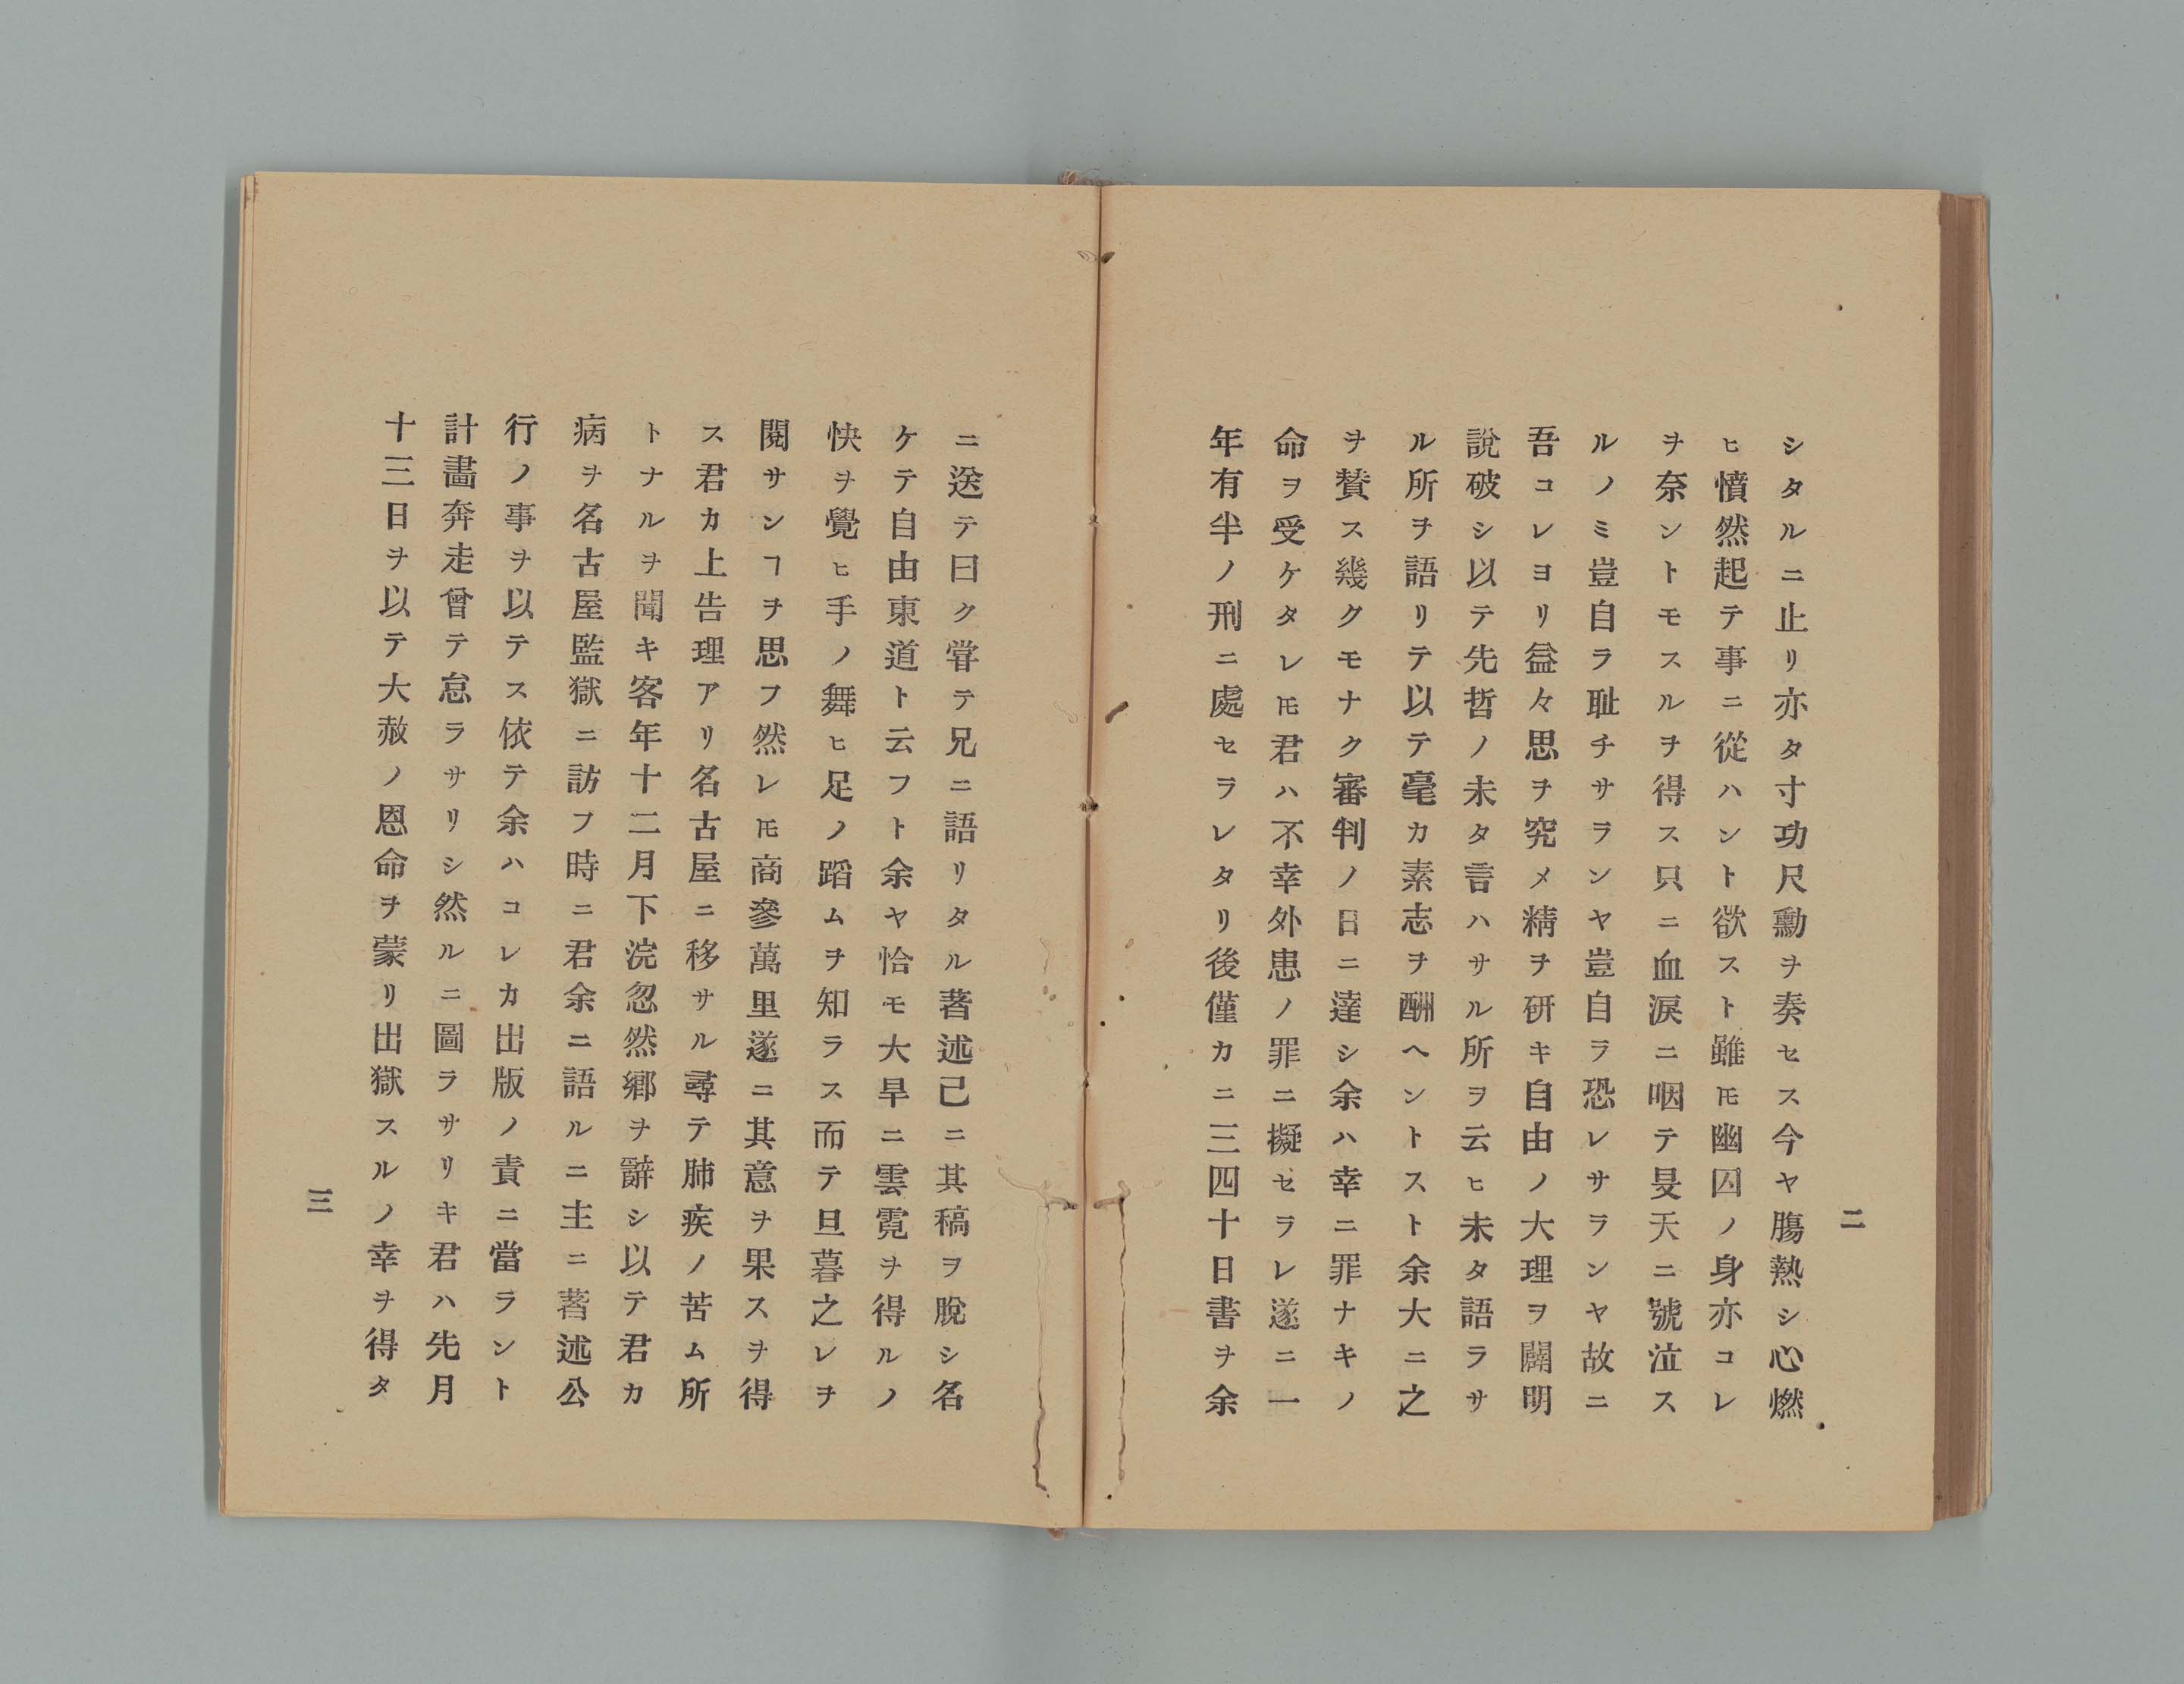 二
シタルニ止リ亦タ寸功尺勳ヲ奏セス今ヤ膓熱シ心燃
ヒ憤然起テ事ニ從ハント欲スト雖𪜈幽囚ノ身亦コレ
ヲ奈ントモスルヲ得ス只ニ血淚ニ咽テ旻天ニ號泣ス
ルノミ豈自ラ耻チサランヤ豈自ラ恐レサランヤ故ニ
吾コレヨリ益々思ヲ究メ精ヲ研キ自由ノ大理ヲ闡明
說破シ以テ先哲ノ未タ言ハサル所ヲ云ヒ未タ語ラサ
ル所ヲ語リテ以テ毫カ素志ヲ酬ヘントスト余大ニ之
ヲ贊ス幾クモナク審判ノ日ニ達シ余ハ幸ニ罪ナキノ
命ヲ受ケタレ𪜈君ハ不幸外患ノ罪ニ擬セラレ遂ニ一
年有半ノ刑ニ處セラレタリ後僅カニ三四十日書ヲ余
ニ送テ曰ク甞テ兄ニ語リタル著述己ニ其稿ヲ脫シ名
ケテ自由東道ト云フト余ヤ恰モ大旱ニ雲霓ヲ得ルノ
快ヲ覺ヒ手ノ舞ヒ足ノ蹈ムヲ知ラス而テ旦暮之レヲ
閱サンヿヲ思フ然レ𪜈商參萬里遂ニ其意ヲ果スヲ得
ス君カ上告理アリ名古屋ニ移サル尋テ肺疾ノ苦ム所
トナルヲ聞キ客年十二月下浣忽然鄕ヲ辭シ以テ君カ
病ヲ名古屋監獄ニ訪フ時ニ君余ニ語ルニ主ニ著述公
行ノ事ヲ以テス依テ余ハコレカ出版ノ責ニ當ラント
計畵奔走曾テ怠ラサリシ然ルニ圖ラサリキ君ハ先月
十三日ヲ以テ大赦ノ恩命ヲ蒙リ出獄スルノ幸ヲ得タ
三